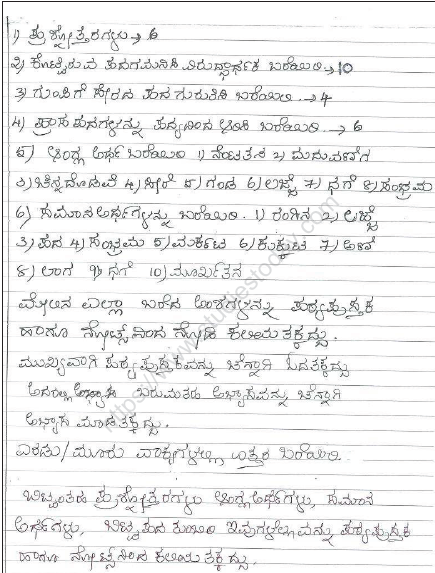 1) ಪ್ರಶ್ನೋತ್ತರಗಳು → 6
2) ಕೊಟ್ಟಿರುವ ಪದಗಮನಿಸಿ ವಿರುದ್ಧಾರ್ಥಕ ಬರೆಯಿರಿ → 10
3) ಗುಂಪಿಗೆ ಸೇರದ ಪದ ಗುರುತಿಸಿ ಬರೆಯಿರಿ → 4
4) ಪ್ರಾಸ ಪದಗಳನ್ನು ಪದ್ಯದಿಂದ ಆರಿಸಿ ಬರೆಯಿರಿ → 6
5) ಆಂಗ್ಲ ಅರ್ಥ ಬರೆಯಿರಿ 1) ನೆಂಟತನ 2) ಮದುವಣಿಗ
3) ಚಿನ್ನದೊಡವೆ 4) ಸೀರೆ 5) ಗಂಡ 6) ಲಜ್ಜೆ 7) ನಗೆ 8) ಸಂಭ್ರಮ
6) ಸಮಾನ ಅರ್ಥಗಳನ್ನು ಬರೆಯಿರಿ. 1) ರಂಗಿನ 2) ಲಜ್ಜೆ
3) ಪದ 4) ಸಂಭ್ರಮ 5) ಮರ್ಕಟ 6) ಕುಕ್ಕುಟ 7) ಅಣಿ
8) ಲಾಗ 9) ನಗೆ 10) ಮೂರ್ಖತನ
ಮೇಲಿನ ಎಲ್ಲಾ ಬರೆದ ಅಂಶಗಳನ್ನು ಪಠ್ಯಪುಸ್ತಕ
ಹಾಗೂ ನೋಟ್ಸ್ ನಿಂದ ನೋಡಿ ಕಲಿಯತಕ್ಕದ್ದು.
ಮುಖ್ಯವಾಗಿ ಪಠ್ಯಪುಸ್ತಕವನ್ನು ಚೆನ್ನಾಗಿ ಓದತಕ್ಕದ್ದು
ಅದರಲ್ಲಿ ಅಭ್ಯಾಸ ಬರುವಂತಹ ಅಭ್ಯಾಸವನ್ನು ಚೆನ್ನಾಗಿ
ಅಭ್ಯಾಸ ಮಾಡತಕ್ಕದ್ದು.
ಎರಡು/ಮೂರು ವಾಕ್ಯಗಳಲ್ಲಿ ಉತ್ತರ ಬರೆಯಿರಿ.
ಬಿಟ್ಟಂತಹ ಪ್ರಶ್ನೋತ್ತರಗಳು ಆಂಗ್ಲ ಅರ್ಥಗಳು, ಸಮಾನ
ಅರ್ಥಗಳು, ಬಿಟ್ಟ ಪದ ತುಂಬಿರಿ ಇವುಗಳೆಲ್ಲವನ್ನು ಪಠ್ಯಪುಸ್ತಕ
ಹಾಗೂ ನೋಟ್ಸ್ ನಿಂದ ಕಲಿಯತಕ್ಕದ್ದು.
https://www.studiestoday.com